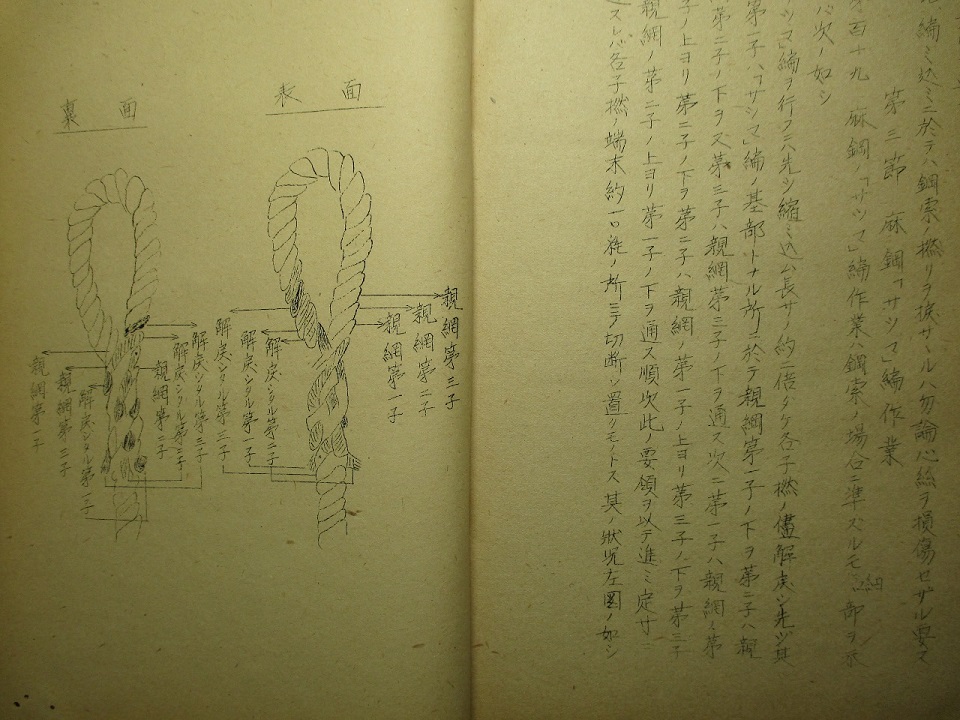 編ミ込ミニ於テハ鋼索ノ撚リヲ損傷セザル要ス
第三節 麻鋼「サツマ」編作業
百十九 麻鋼ノ「サツマ」編作業ハ鋼索ノ場合ニ準スルモ
バ次ノ如シ
編ヲ行フニハ先ツ縮ミ込ム長サノ約二倍ダケ各子撚ノ儘解戻シ先ツ其
第一子ハ「サツマ」編ノ基部トナル所ニ於テ親綱第一子ノ下ヲ第二子ハ親
第二子ノ下ヲ又第三子ハ親綱第三子ノ下ヲ通ス次ニ第一子ハ親綱ノ第
子ノ上ヨリ第二子ノ下ヲ第二子ハ親綱ノ第一子ノ上ヨリ第三子ノ下ヲ第三子
親綱ノ第二子ノ上ヨリ第一子ノ下ヲ通ス順次此ノ要領ヲ以テ進ミ定寸ニ
スレバ各子撚ノ端末約一口ノ所ニテ切断シ置クモノトス其ノ状況左図ノ如シ
表面
親綱第三子
親綱第二子
親綱第一子
解戻シタル第二子
解戻シタル第一子
解戻シタル第三子
裏面
解戻シタル第三子
解戻シタル第二子
親綱第二子
解戻シタル第一子
親綱第三子
親綱第一子